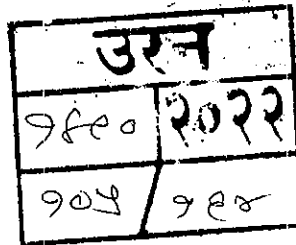 उरन
१४९० २०२२
१०५ / १९४